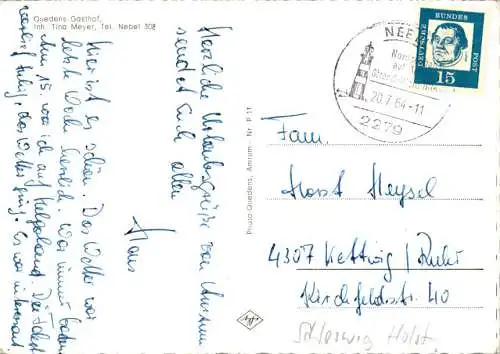 Quedens Gasthof,
Inh. Tina Meyer, Tel. Nebel 308
Hier ist es schön! Das Wetter war
letzte Woche herrlich. War immer baden
Am 15. war ich auf Helgoland. Die Fahrt
verlief ruhig, das Wetter ging. Es war interessant
Herzliche Urlaubsgrüße von Amrum
sendet Euch allen
Hans
Photo-Quedens, Amrum Nr. P 11
NEBEL
20.7.64-11
2279
DEUTSCHE
BUNDES
POST
15
Fam.
Horst Meysel
4307 Kettwig / Ruhr
Kirchfeldstr. 40
Schleswig Holst